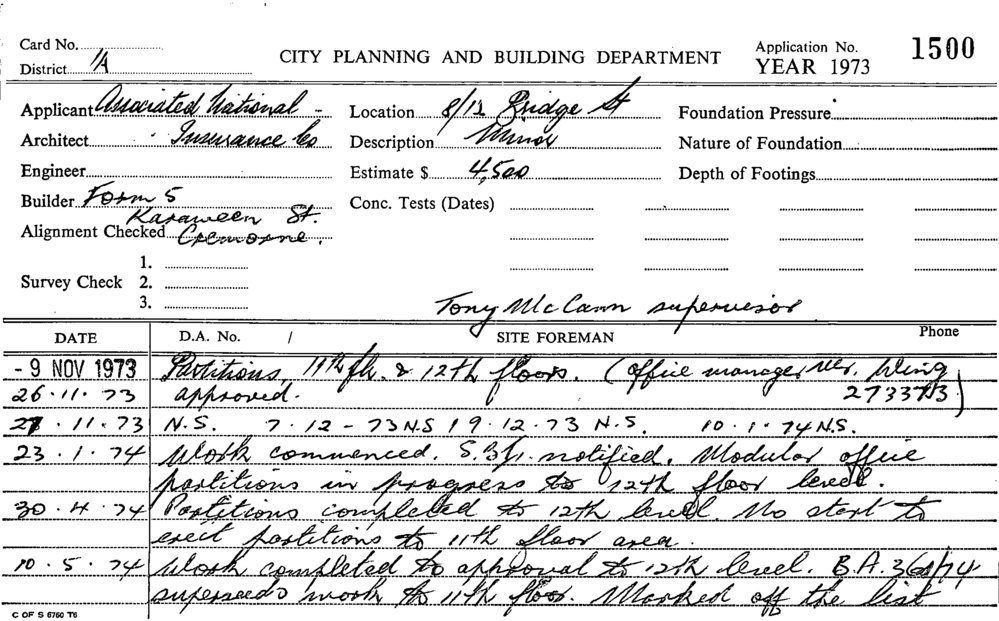 Card No.
District 1A
CITY PLANNING AND BUILDING DEPARTMENT
Application No.
YEAR 1973
1500
Applicant Associated National -
Location 8/12 Bridge St
Foundation Pressure
Architect Insurance Co
Description Minor
Nature of Foundation
Engineer
Estimate $ 4,500
Depth of Footings
Builder Form 5
Conc. Tests (Dates)
Karaween St.
Alignment Checked Cremorne.
Survey Check
1.
2.
3.
Tony McCann supervisor
DATE
D.A. No. /
SITE FOREMAN
Phone
- 9 NOV 1973 Partitions, 11th flr. & 12th floors. (Office manager Mr.
26.11.73 approved. 273373)
27.11.73 N.S. 7.12-73 N.S 19.12.73 N.S. 10.1.74 N.S.
23.1.74 Work commenced. notified. Modular office
partitions in progress to 12th floor level.
30.4.74 Partitions completed to 12th level. No start to
erect partitions to 11th floor area.
10.5.74 Work completed to approval to 12th level. B.A.
superseeds work to 11th floor. Marked off the list
C OF S 6760 T6